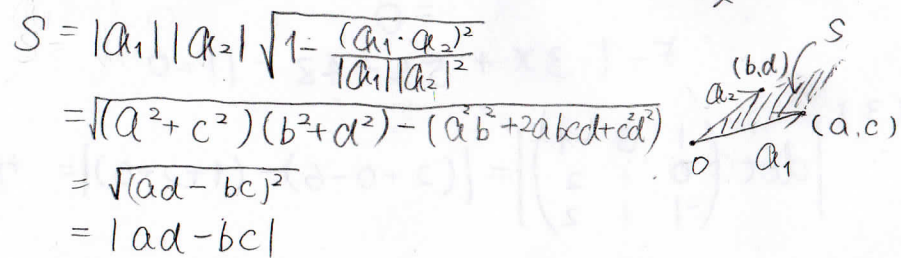 S = |𝕒₁||𝕒₂|√(1 - (𝕒₁·𝕒₂)²/(|𝕒₁||𝕒₂|²))
= √((a²+c²)(b²+d²) - (a²b²+2abcd+c²d²))
= √((ad-bc)²)
= |ad-bc|
S
(b,d)
𝕒₂
(a,c)
0
𝕒₁